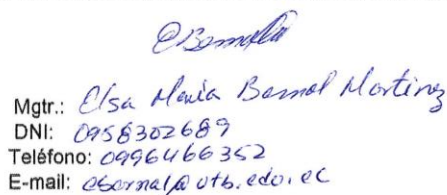 Mgtr.: Elsa María Bernal Martínez
DNI: 0958302689
Teléfono: 0996466352
E-mail: ebernal@utb.edu.ec